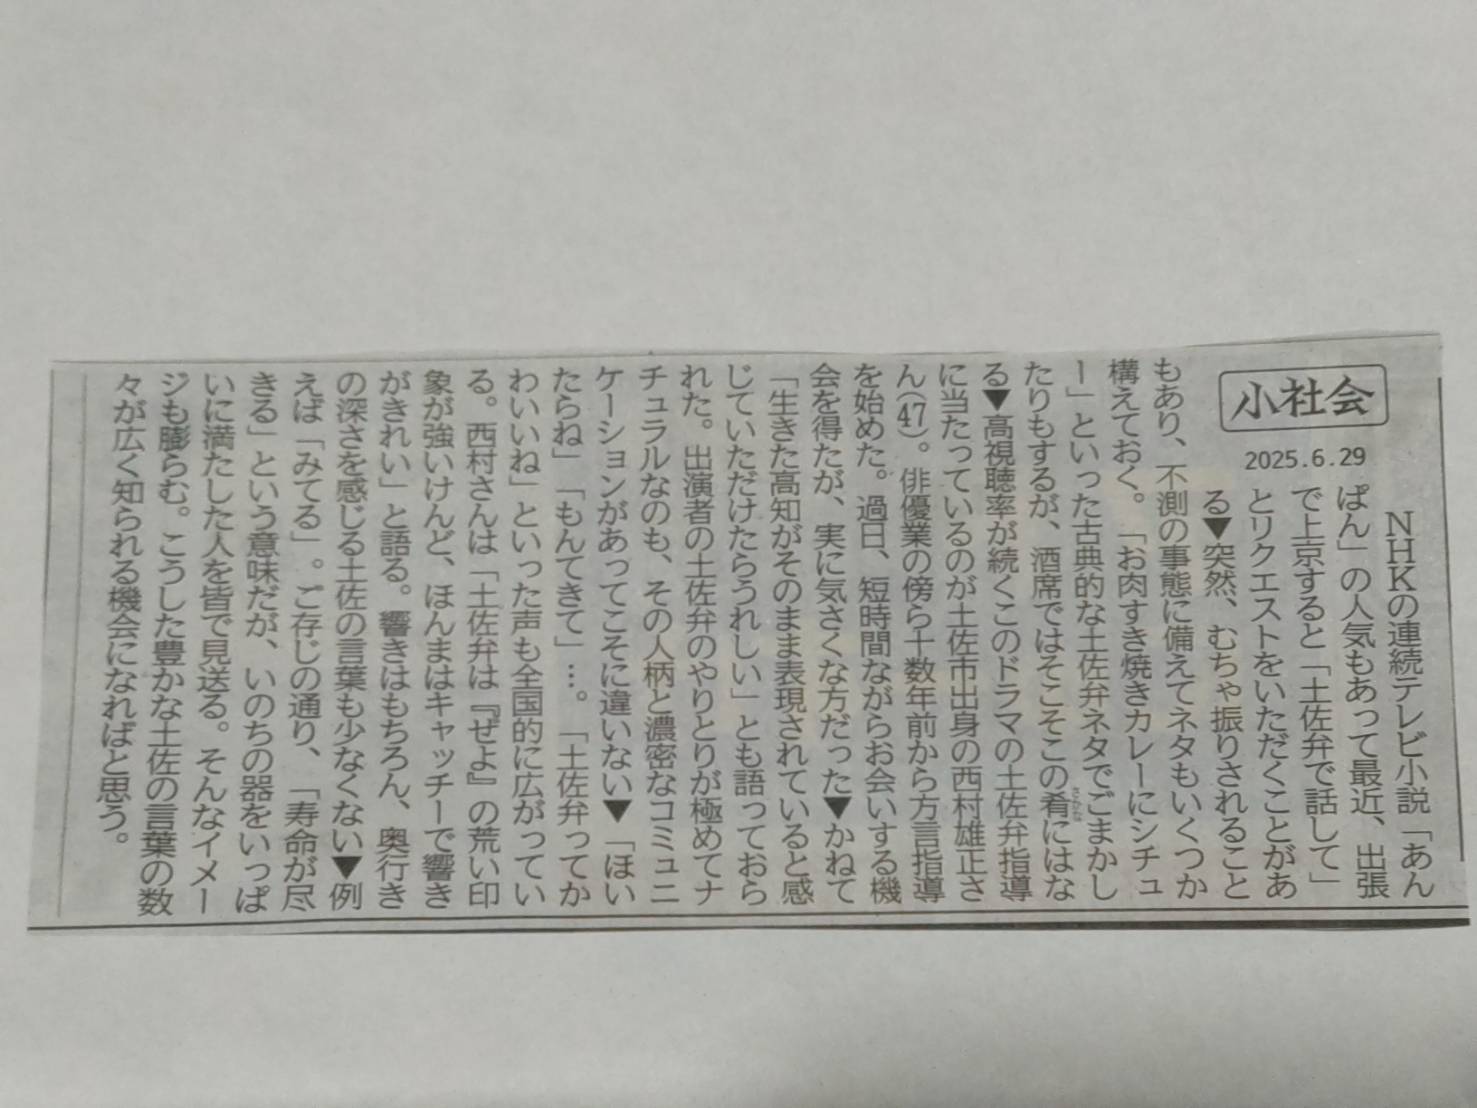 小社会
2025.6.29
NHKの連続テレビ小説「あん
ぱん」の人気もあって最近、出張
で上京すると「土佐弁で話して」
とリクエストをいただくことがあ
る▼突然、むちゃ振りされること
もあり、不測の事態に備えてネタもいくつか
構えておく。「お肉すき焼きカレーにシチュ
ー」といった古典的な土佐弁ネタでごまかし
たりもするが、酒席ではそこそこの肴にはな
さかな
る▼高視聴率が続くこのドラマの土佐弁指導
に当たっているのが土佐市出身の西村雄正さ
ん(47)。俳優業の傍ら十数年前から方言指導
を始めた。過日、短時間ながらお会いする機
会を得たが、実に気さくな方だった▼かねて
「生きた高知がそのまま表現されていると感
じていただけたらうれしい」とも語っておら
れた。出演者の土佐弁のやりとりが極めてナ
チュラルなのも、その人柄と濃密なコミュニ
ケーションがあってこそに違いない▼「ほい
たらね」「もんてきて」…。「土佐弁ってか
わいいね」といった声も全国的に広がってい
る。西村さんは「土佐弁は『ぜよ』の荒い印
象が強いけんど、ほんまはキャッチーで響き
がきれい」と語る。響きはもちろん、奥行き
の深さを感じる土佐の言葉も少なくない▼例
えば「みてる」。ご存じの通り、「寿命が尽
きる」という意味だが、いのちの器をいっぱ
いに満たした人を皆で見送る。そんなイメー
ジも膨らむ。こうした豊かな土佐の言葉の数
々が広く知られる機会になればと思う。